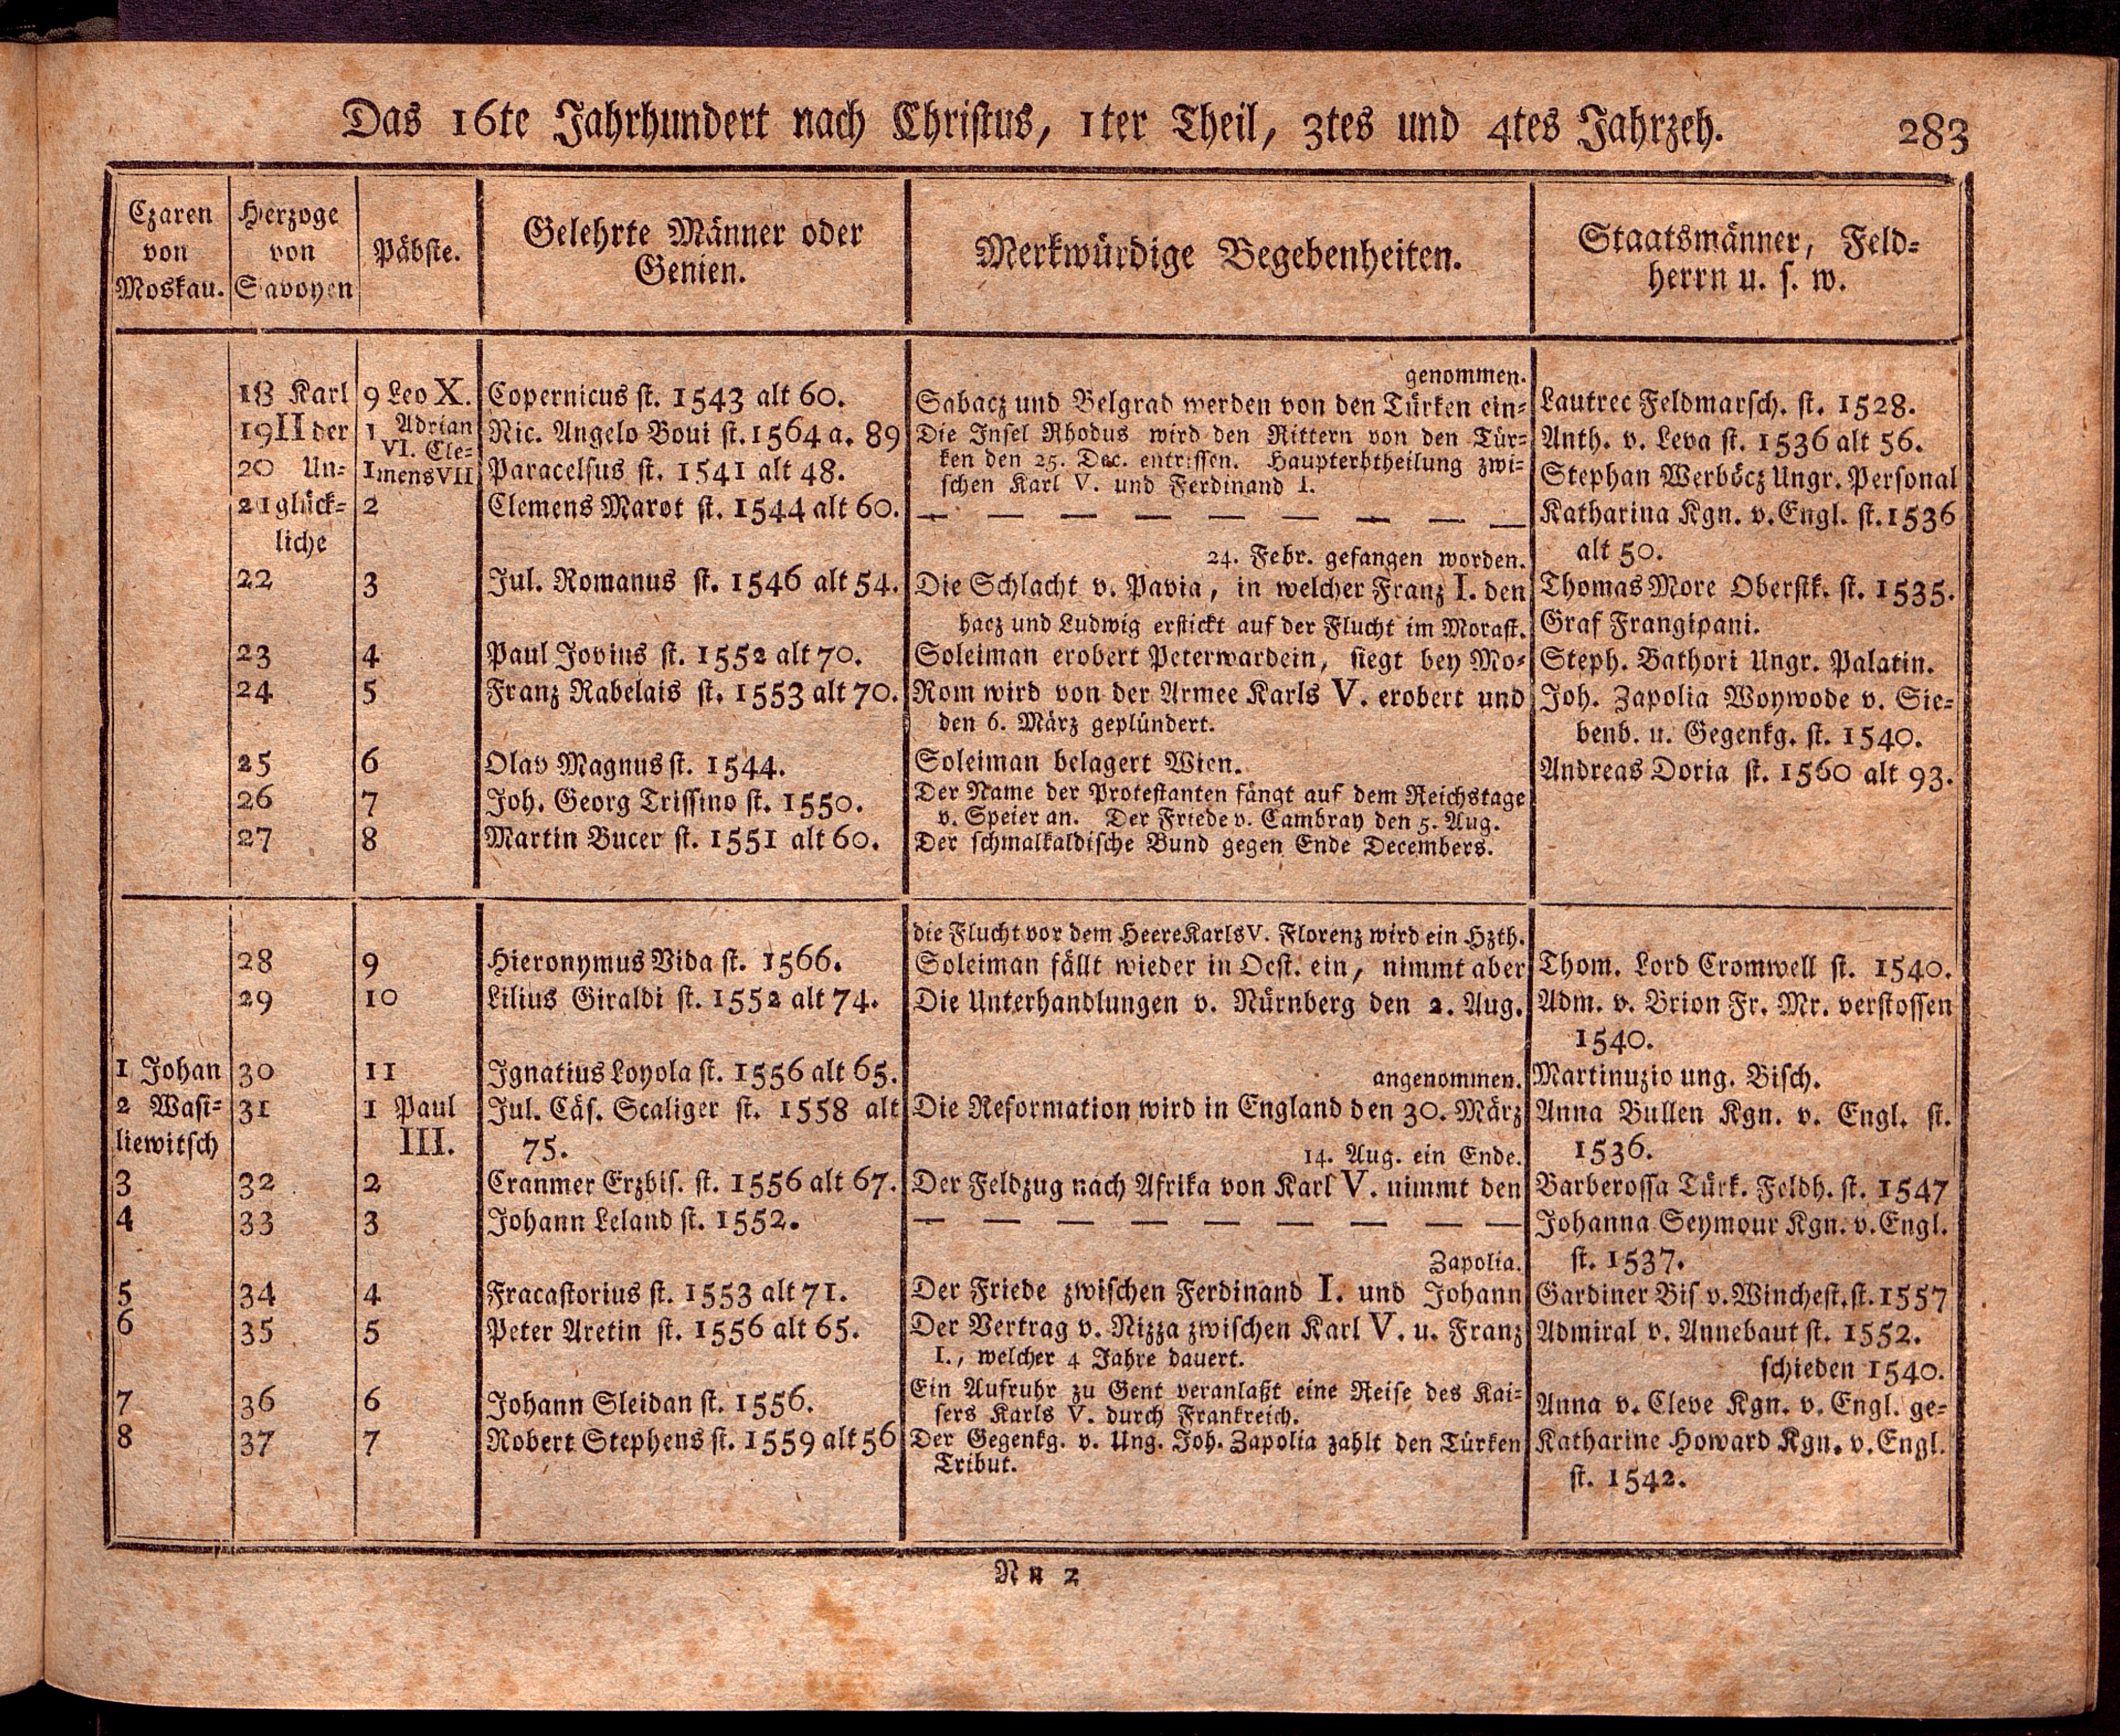 Das 16te Jahrhundert nach Christus, 1ter Theil, 3tes und 4tes Jahrzeh. 283
Czaren
von
Moskau.
Herzoge
von
Savoyen
Päbste.
Gelehrte Männer oder
Genien.
Merkwürdige Begebenheiten.
Staatsmänner, Feld-
herrn u. s. w.
18 Karl
19 II der
20 Un-
21 glück-
liche
22
23
24
25
26
27
9 Leo X.
1 Adrian
VI. Cle-
1 mens VII
2
3
4
5
6
7
8
Copernicus st. 1543 alt 60.
Nic. Angelo Boui st. 1564 a. 89
Paracelsus st. 1541 alt 48.
Clemens Marot st. 1544 alt 60.
Jul. Romanus st. 1546 alt 54.
Paul Jovius st. 1552 alt 70.
Franz Rabelais st. 1553 alt 70.
Olav Magnus st. 1544.
Joh. Georg Trissino st. 1550.
Martin Bucer st. 1551 alt 60.
genommen.
Sabacz und Belgrad werden von den Türken ein-
Die Insel Rhodus wird den Rittern von den Tür-
ken den 25. Dec. entrissen. Haupterbtheilung zwi-
schen Karl V. und Ferdinand I.
— — — — — — — — —
24. Febr. gefangen worden.
Die Schlacht v. Pavia, in welcher Franz I. den
hacz und Ludwig erstickt auf der Flucht im Morast.
Soleiman erobert Peterwardein, siegt bey Mo-
Rom wird von der Armee Karls V. erobert und
den 6. März geplündert.
Soleiman belagert Wien.
Der Name der Protestanten fängt auf dem Reichstage
v. Speier an. Der Friede v. Cambray den 5. Aug.
Der schmalkaldische Bund gegen Ende Decembers.
Lautrec Feldmarsch. st. 1528.
Anth. v. Leva st. 1536 alt 56.
Stephan Werböcz Ungr. Personal
Katharina Kgn. v. Engl. st. 1536
alt 50.
Thomas More Oberstk. st. 1535.
Graf Frangipani.
Steph. Bathori Ungr. Palatin.
Joh. Zapolia Woywode v. Sie-
benb. u. Gegenkg. st. 1540.
Andreas Doria st. 1560 alt 93.
1 Johan
2 Wasi-
liewitsch
3
4
5
6
7
8
28
29
30
31
32
33
34
35
36
37
9
10
11
1 Paul
III.
2
3
4
5
6
7
Hieronymus Vida st. 1566.
Lilius Giraldi st. 1552 alt 74.
Ignatius Loyola st. 1556 alt 65.
Jul. Cäs. Scaliger st. 1558 alt
75.
Cranmer Erzbis. st. 1556 alt 67.
Johann Leland st. 1552.
Fracastorius st. 1553 alt 71.
Peter Aretin st. 1556 alt 65.
Johann Sleidan st. 1556.
Robert Stephens st. 1559 alt 56
die Flucht vor dem Heere Karls V. Florenz wird ein Hzth.
Soleiman fällt wieder in Oest. ein, nimmt aber
Die Unterhandlungen v. Nürnberg den 2. Aug.
angenommen.
Die Reformation wird in England den 30. März
14. Aug. ein Ende.
Der Feldzug nach Afrika von Karl V. nimmt den
— — — — — — — — —
Zapolia.
Der Friede zwischen Ferdinand I. und Johann
Der Vertrag v. Nizza zwischen Karl V. u. Franz
I., welcher 4 Jahre dauert.
Ein Aufruhr zu Gent veranlaßt eine Reise des Kai-
sers Karls V. durch Frankreich.
Der Gegenkg. v. Ung. Joh. Zapolia zahlt den Türken
Tribut.
Thom. Lord Cromwell st. 1540.
Adm. v. Brion Fr. Mr. verstossen
1540.
Martinuzio ung. Bisch.
Anna Bullen Kgn. v. Engl. st.
1536.
Barberossa Türk. Feldh. st. 1547
Johanna Seymour Kgn. v. Engl.
st. 1537.
Gardiner Bis v. Winchest. st. 1557
Admiral v. Annebaut st. 1552.
schieden 1540.
Anna v. Cleve Kgn. v. Engl. ge-
Katharine Howard Kgn. v. Engl.
st. 1542.
Nn 2